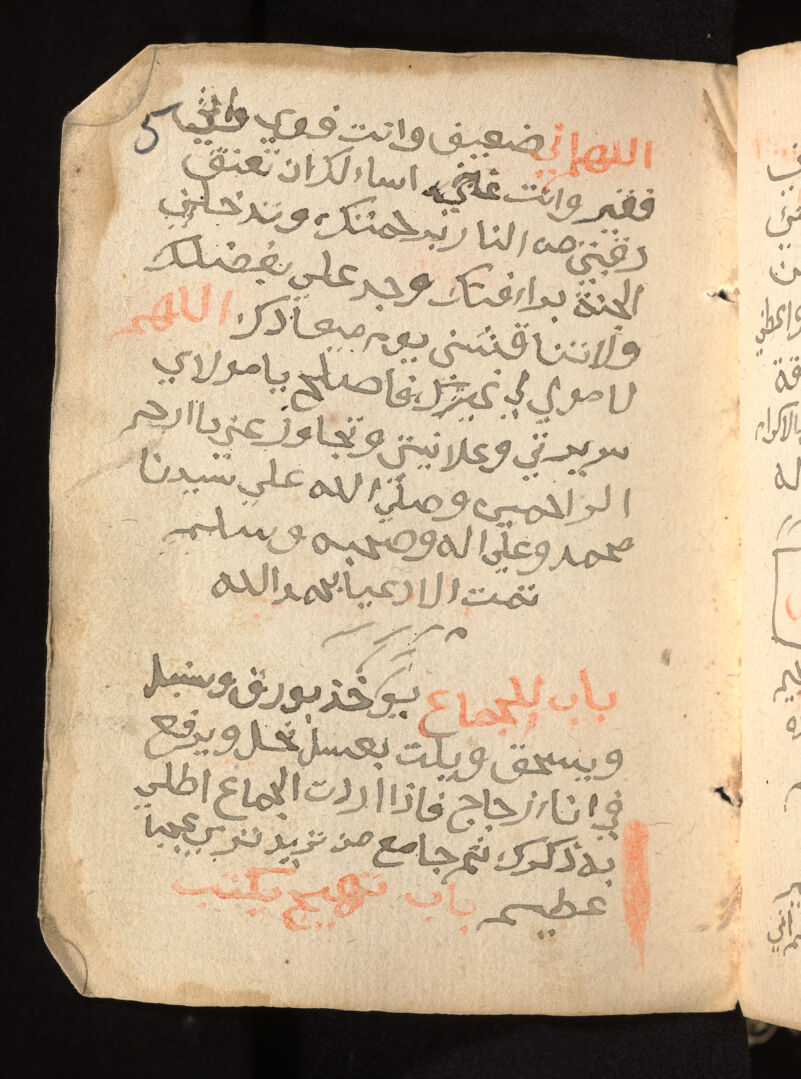 5
اللهم اني ضعيف وانت قوي واني
فقير وانت غني اساءلك ان تعتق
رقبتي من النار برحمتك وتدخلني
الجنة براءفتك وجد علي بفضلك
ولا تناقشني يوم ميعادك اللهم
يا مولاي فاصلح يا مولاي
سريرتي وعلانيتي وتجاوز عني يا ارحم
الراحمين وصلي الله علي سيدنا
محمد وعلي اله وصحبه وسلم
تمت الادعيا بحمد الله
باب للجماع يوخذ بورق وسنبل
ويسحق ويلت بعسل نحل ويرفع
في اناء زجاج فاذا اردت الجماع اطلي
به ذكرك ثم جامع من تريد تري عجبا
عظيم باب تهيج يكتب